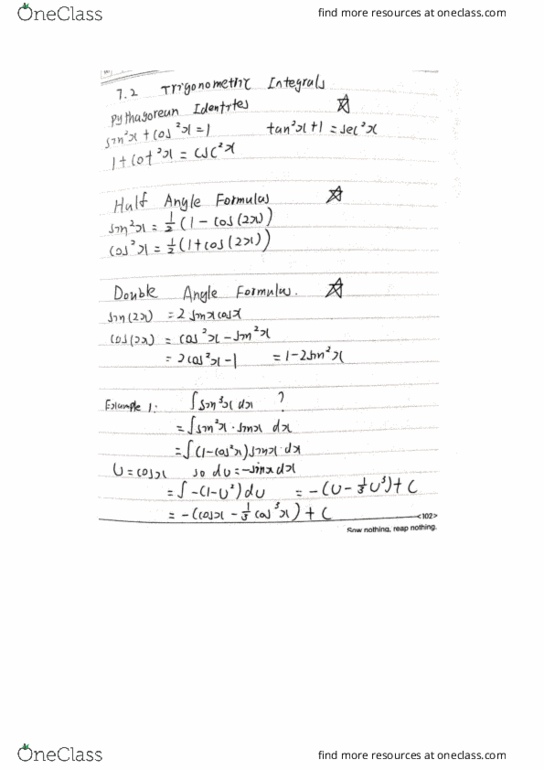 OneClass
find more resources at oneclass.com
7.2 Trigonometric Integrals
Pythagorean Identites
sin²x + cos²x = 1 tan²x + 1 = sec²x
1 + cot²x = csc²x
Half Angle Formulas
sin²x = 1/2 (1 - cos(2x))
cos²x = 1/2 (1 + cos(2x))
Double Angle Formulas.
sin(2x) = 2 sinx cosx
cos(2x) = cos²x - sin²x
= 2cos²x - 1 = 1 - 2sin²x
Example 1: ∫ sin³x dx ?
= ∫ sin²x · sinx dx
= ∫ (1 - cos²x) sinx · dx
U = cosx so dU = -sinx dx
= ∫ -(1 - U²) dU = -(U - 1/3 U³) + C
= -(cosx - 1/3 cos³x) + C
<102>
Sow nothing, reap nothing.
OneClass
find more resources at oneclass.com